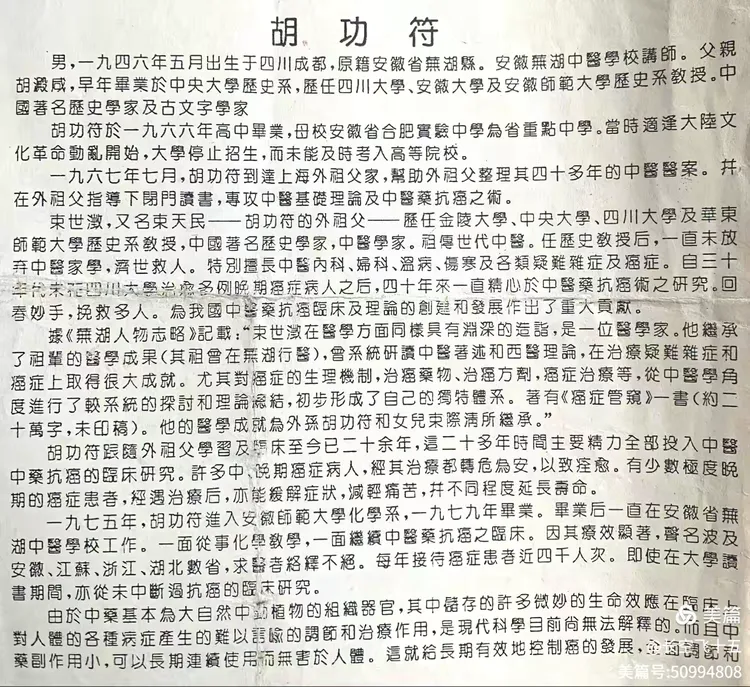 胡功符
男，一九四六年五月出生于四川成都，原籍安徽省無湖縣。安徽無湖中醫學校講師。父親
胡澱咸，早年畢業於中央大學歷史系，歷任四川大學、安徽大學及安徽師範大學歷史系教授。中
國著名歷史學家及古文字學家
胡功符於一九六六年高中畢業，母校安徽省合肥實驗中學為省重點中學。當時適逢大陸文
化革命動亂開始，大學停止招生，而未能及時考入高等院校。
一九六七年七月，胡功符到達上海外祖父家，幫助外祖父整理其四十多年的中醫醫案。并
在外祖父指導下閉門讀書，專攻中醫基礎理論及中醫藥抗癌之術。
束世澂，又名束天民——胡功符的外祖父——歷任金陵大學、中央大學、四川大學及華東
師範大學歷史系教授，中國著名歷史學家，中醫學家。祖傳世代中醫。任歷史教授后，一直未放
弃中醫家學，濟世救人。特別擅長中醫內科、婦科、溫病、傷寒及各類疑難雜症及癌症。自三十
年代末在四川大學治愈多例晚期癌症病人之后，四十年來一直精心於中醫藥抗癌術之研究。回
春妙手，挽救多人。為我國中醫藥抗癌臨床及理論的創建和發展作出了重大貢獻。
據《無湖人物志略》記載：“束世澂在醫學方面同樣具有淵深的造詣，是一位醫學家。他繼承
了祖輩的醫學成果（其祖曾在無湖行醫），曾系統研讀中醫著述和西醫理論，在治療疑難雜症和
癌症上取得很大成就。尤其對癌症的生理機制，治癌藥物、治癌方劑，癌症治療等，從中醫學角
度進行了較系統的探討和理論總結，初步形成了自己的獨特體系。著有《癌症管窺》一書（約二
十萬字，未印稿）。他的醫學成就為外孫胡功符和女兒束際清所繼承。”
胡功符跟隨外祖父學習及臨床至今已二十余年，這二十多年時間主要精力全部投入中醫
中藥抗癌的臨床研究。許多中、晚期癌症病人，經其治療都轉危為安，以致痊愈。有少數極度晚
期的癌症患者，經過治療后，亦能緩解症狀，減輕痛苦，并不同程度延長壽命。
一九七五年，胡功符進入安徽師範大學化學系，一九七九年畢業。畢業后一直在安徽省無
湖中醫學校工作。一面從事化學教學，一面繼續中醫藥抗癌之臨床。因其療效顯著，聲名波及
安徽、江蘇、浙江、湖北數省，求醫者絡繹不絕。每年接待癌症患者近四千人次。即使在大學讀
書期間，亦從未中斷過抗癌的臨床研究。
由於中藥基本為大自然中動植物的組織器官，其中儲存的許多微妙的生命效應在臨床上
對人體的各種病症產生的難以言喻的調節和治療作用，是現代科學目前尚無法解釋的。而且中
藥副作用小，可以長期連續使用而無害於人體。這就給長期有效地控制癌的發展，調節和
美篇
美篇号:50994808